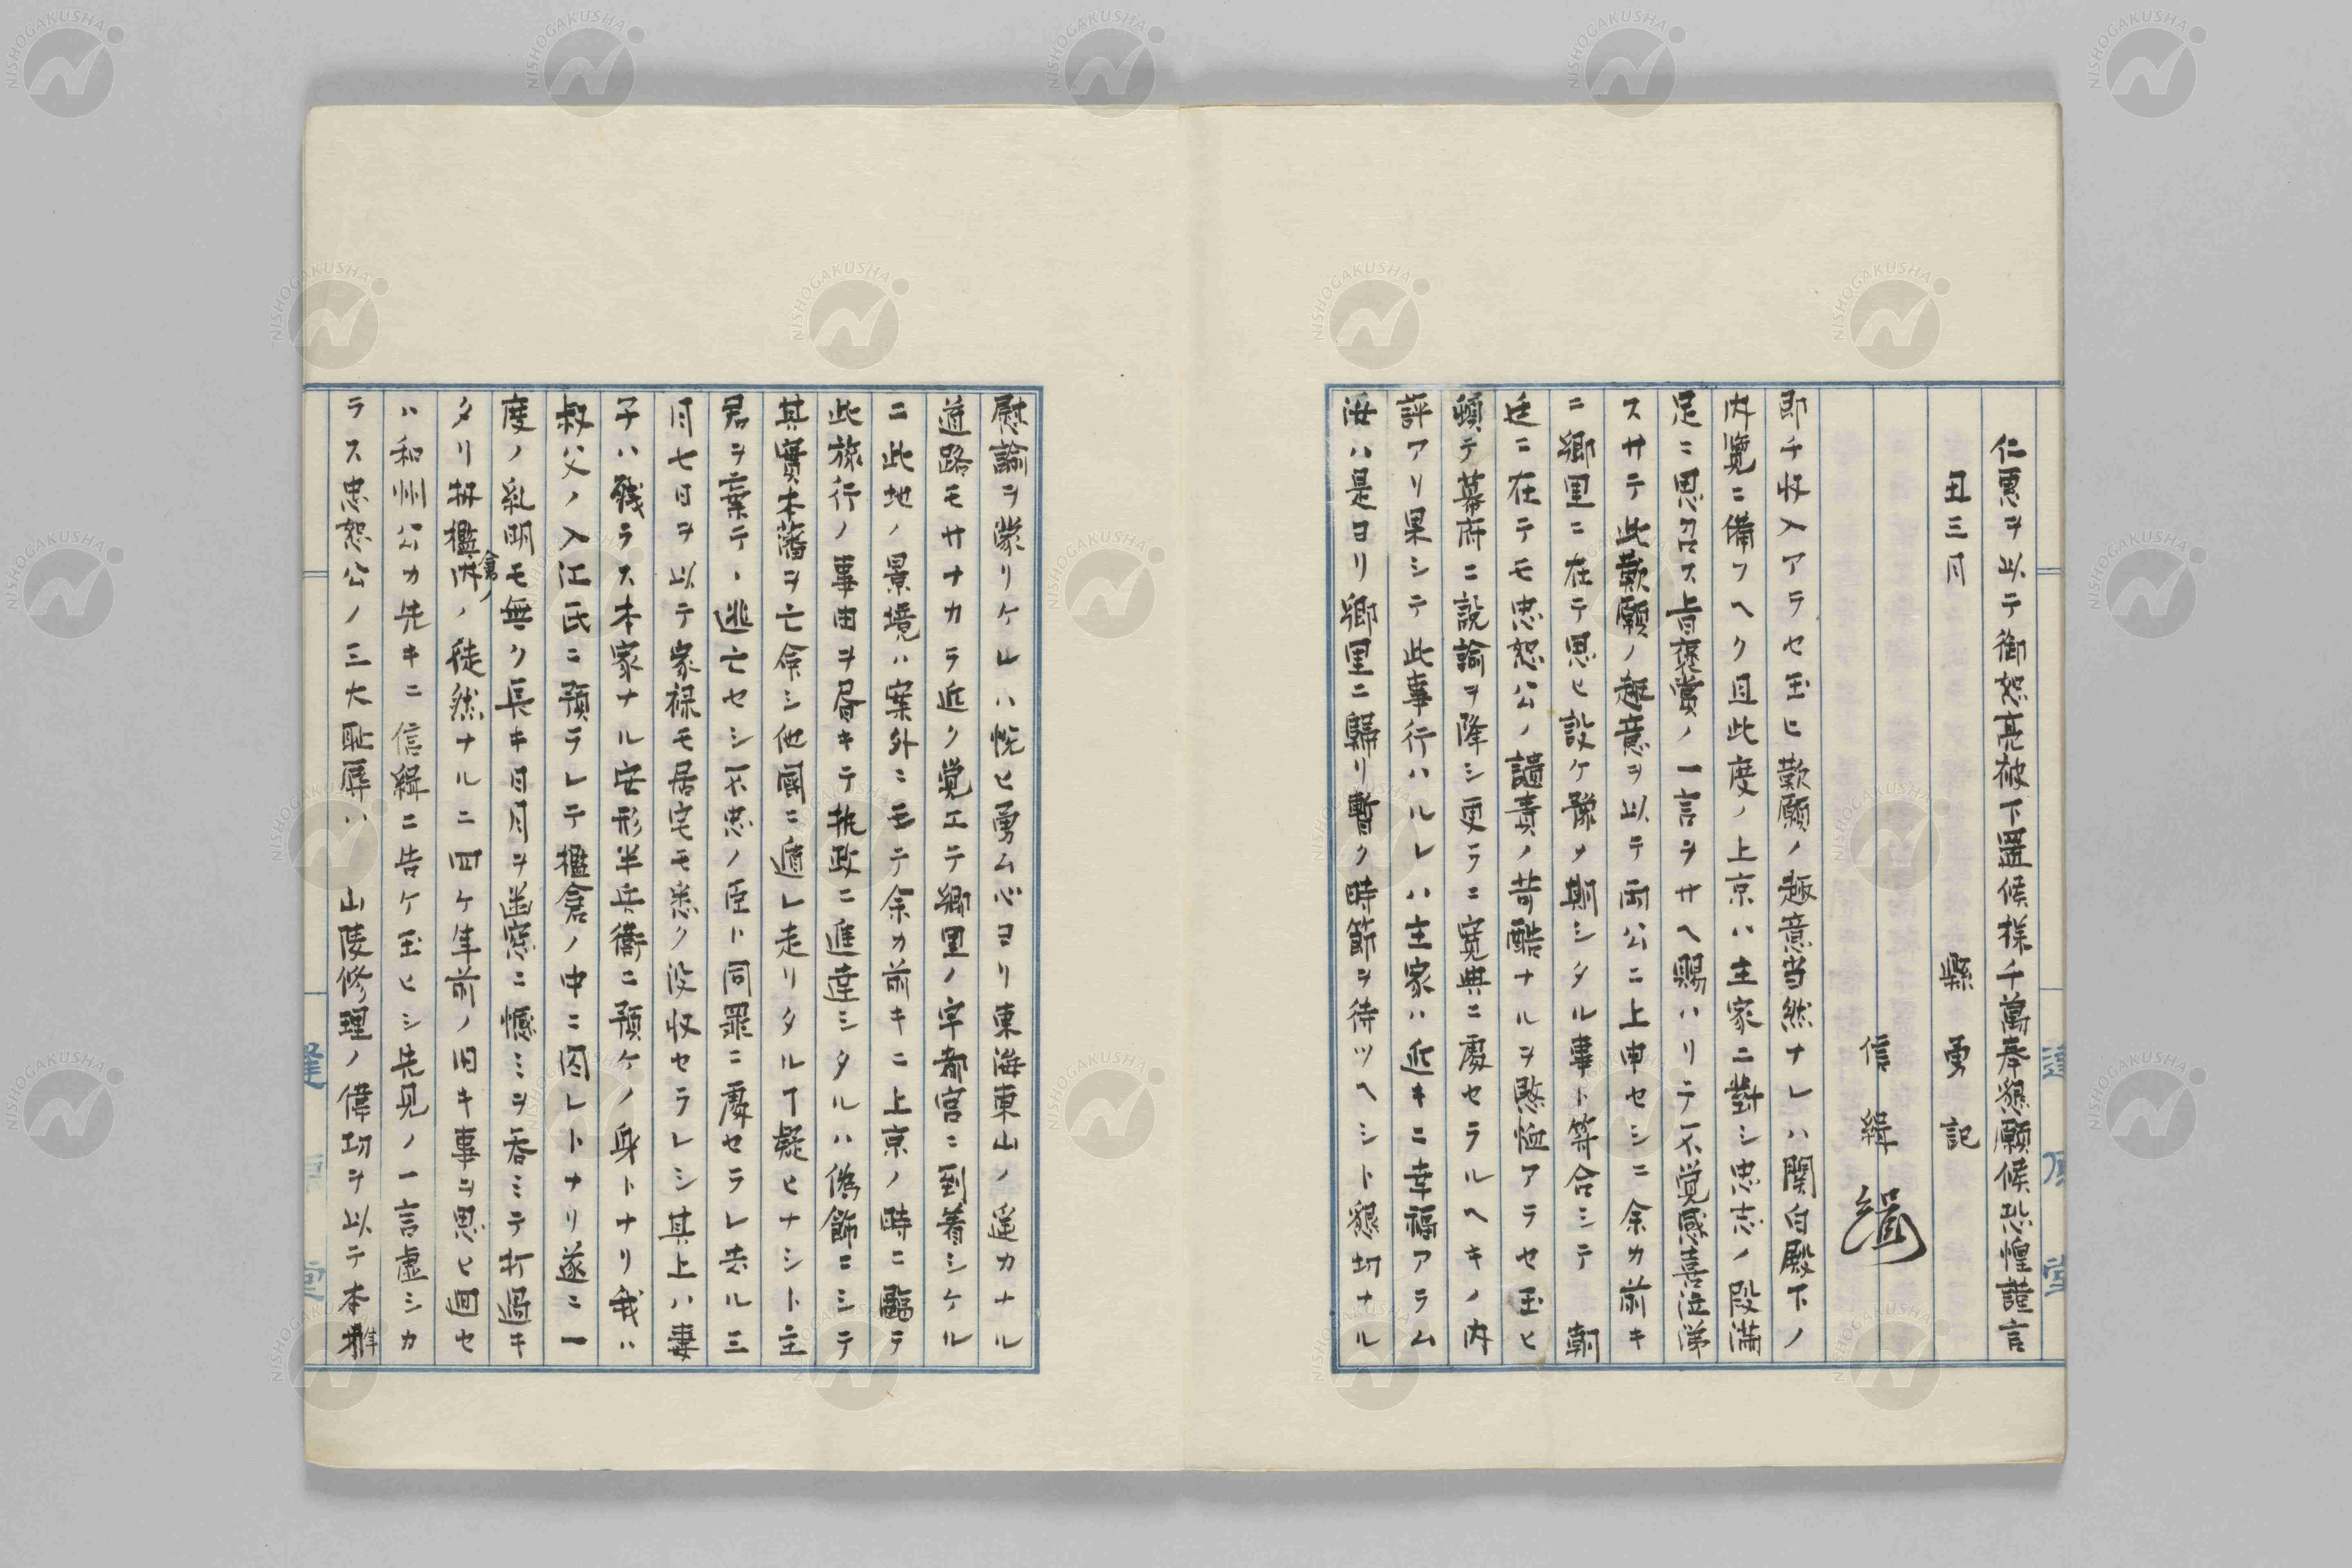 仁惠ヲ以テ御恕亮被下置候様千萬奉懇願候恐惶謹言
丑三月
縣勇記
信緝
即チ収入アラセ玉ヒ歎願ノ趣意当然ナレハ関白殿下ノ
内覧ニ備フヘク且此度ノ上京ハ主家ニ對シ忠志ノ段満
足ニ思召ス旨褒賞ノ一言ヲサヘ賜ハリテ不覚感喜泣涕
スサテ此歎願ノ趣意ヲ以テ両公ニ上申セシニ余カ前キ
ニ郷里ニ在テ思ヒ設ケ豫メ期シタル事ト等合シテ 朝
廷ニ在テモ忠恕公ノ譴責ノ苛酷ナルヲ愍恤アラセ玉ヒ
頓テ幕府ニ説諭ヲ降シ更ラニ寛典ニ處セラルヘキノ内
評アリ果シテ此事行ハルレハ主家ハ近キニ幸福アラム
汝ハ是ヨリ郷里ニ歸リ暫ク時節ヲ待ツヘシト懇切ナル
慰諭ヲ蒙リケレハ悦ヒ勇ム心ヨリ東海東山ノ遥カナル
道路モサナカラ近ク覚エテ郷里ノ宇都宮ニ到着シケル
ニ此地ノ景境ハ案外ニモテ余カ前キニ上京ノ時ニ臨テ
此旅行ノ事由ヲ昏キテ執政ニ進達シタルハ偽飾ニシテ
其實本藩ヲ亡命シ他國ニ遁レ走リタルヿ疑ヒナシト主
君ヲ棄テヽ逃亡セシ不忠ノ臣ト同罪ニ處セラレ去ル三
月七日ヲ以テ家禄モ居宅モ悉ク没収セラレシ其上ハ妻
子ハ残ラス本家ナル安形半兵衛ニ預ケノ身トナリ我ハ
叔父ノ入江氏ニ預ラレテ檻倉ノ中ニ囚レトナリ遂ニ一
度ノ乱明モ無ク長キ日月ヲ送窓ニ憾ミヲ呑ミテ打過キ
タリ扨檻倉内ノ徒然ナルニ四ケ年前ノ旧キ事ヲ思ヒ回セ
ハ和州公カ先キニ信緝ニ告ケ玉ヒシ先見ノ一言虚シカ
ラス忠恕公ノ三大恥辱ハ 山陵修理ノ偉功ヲ以テ本年